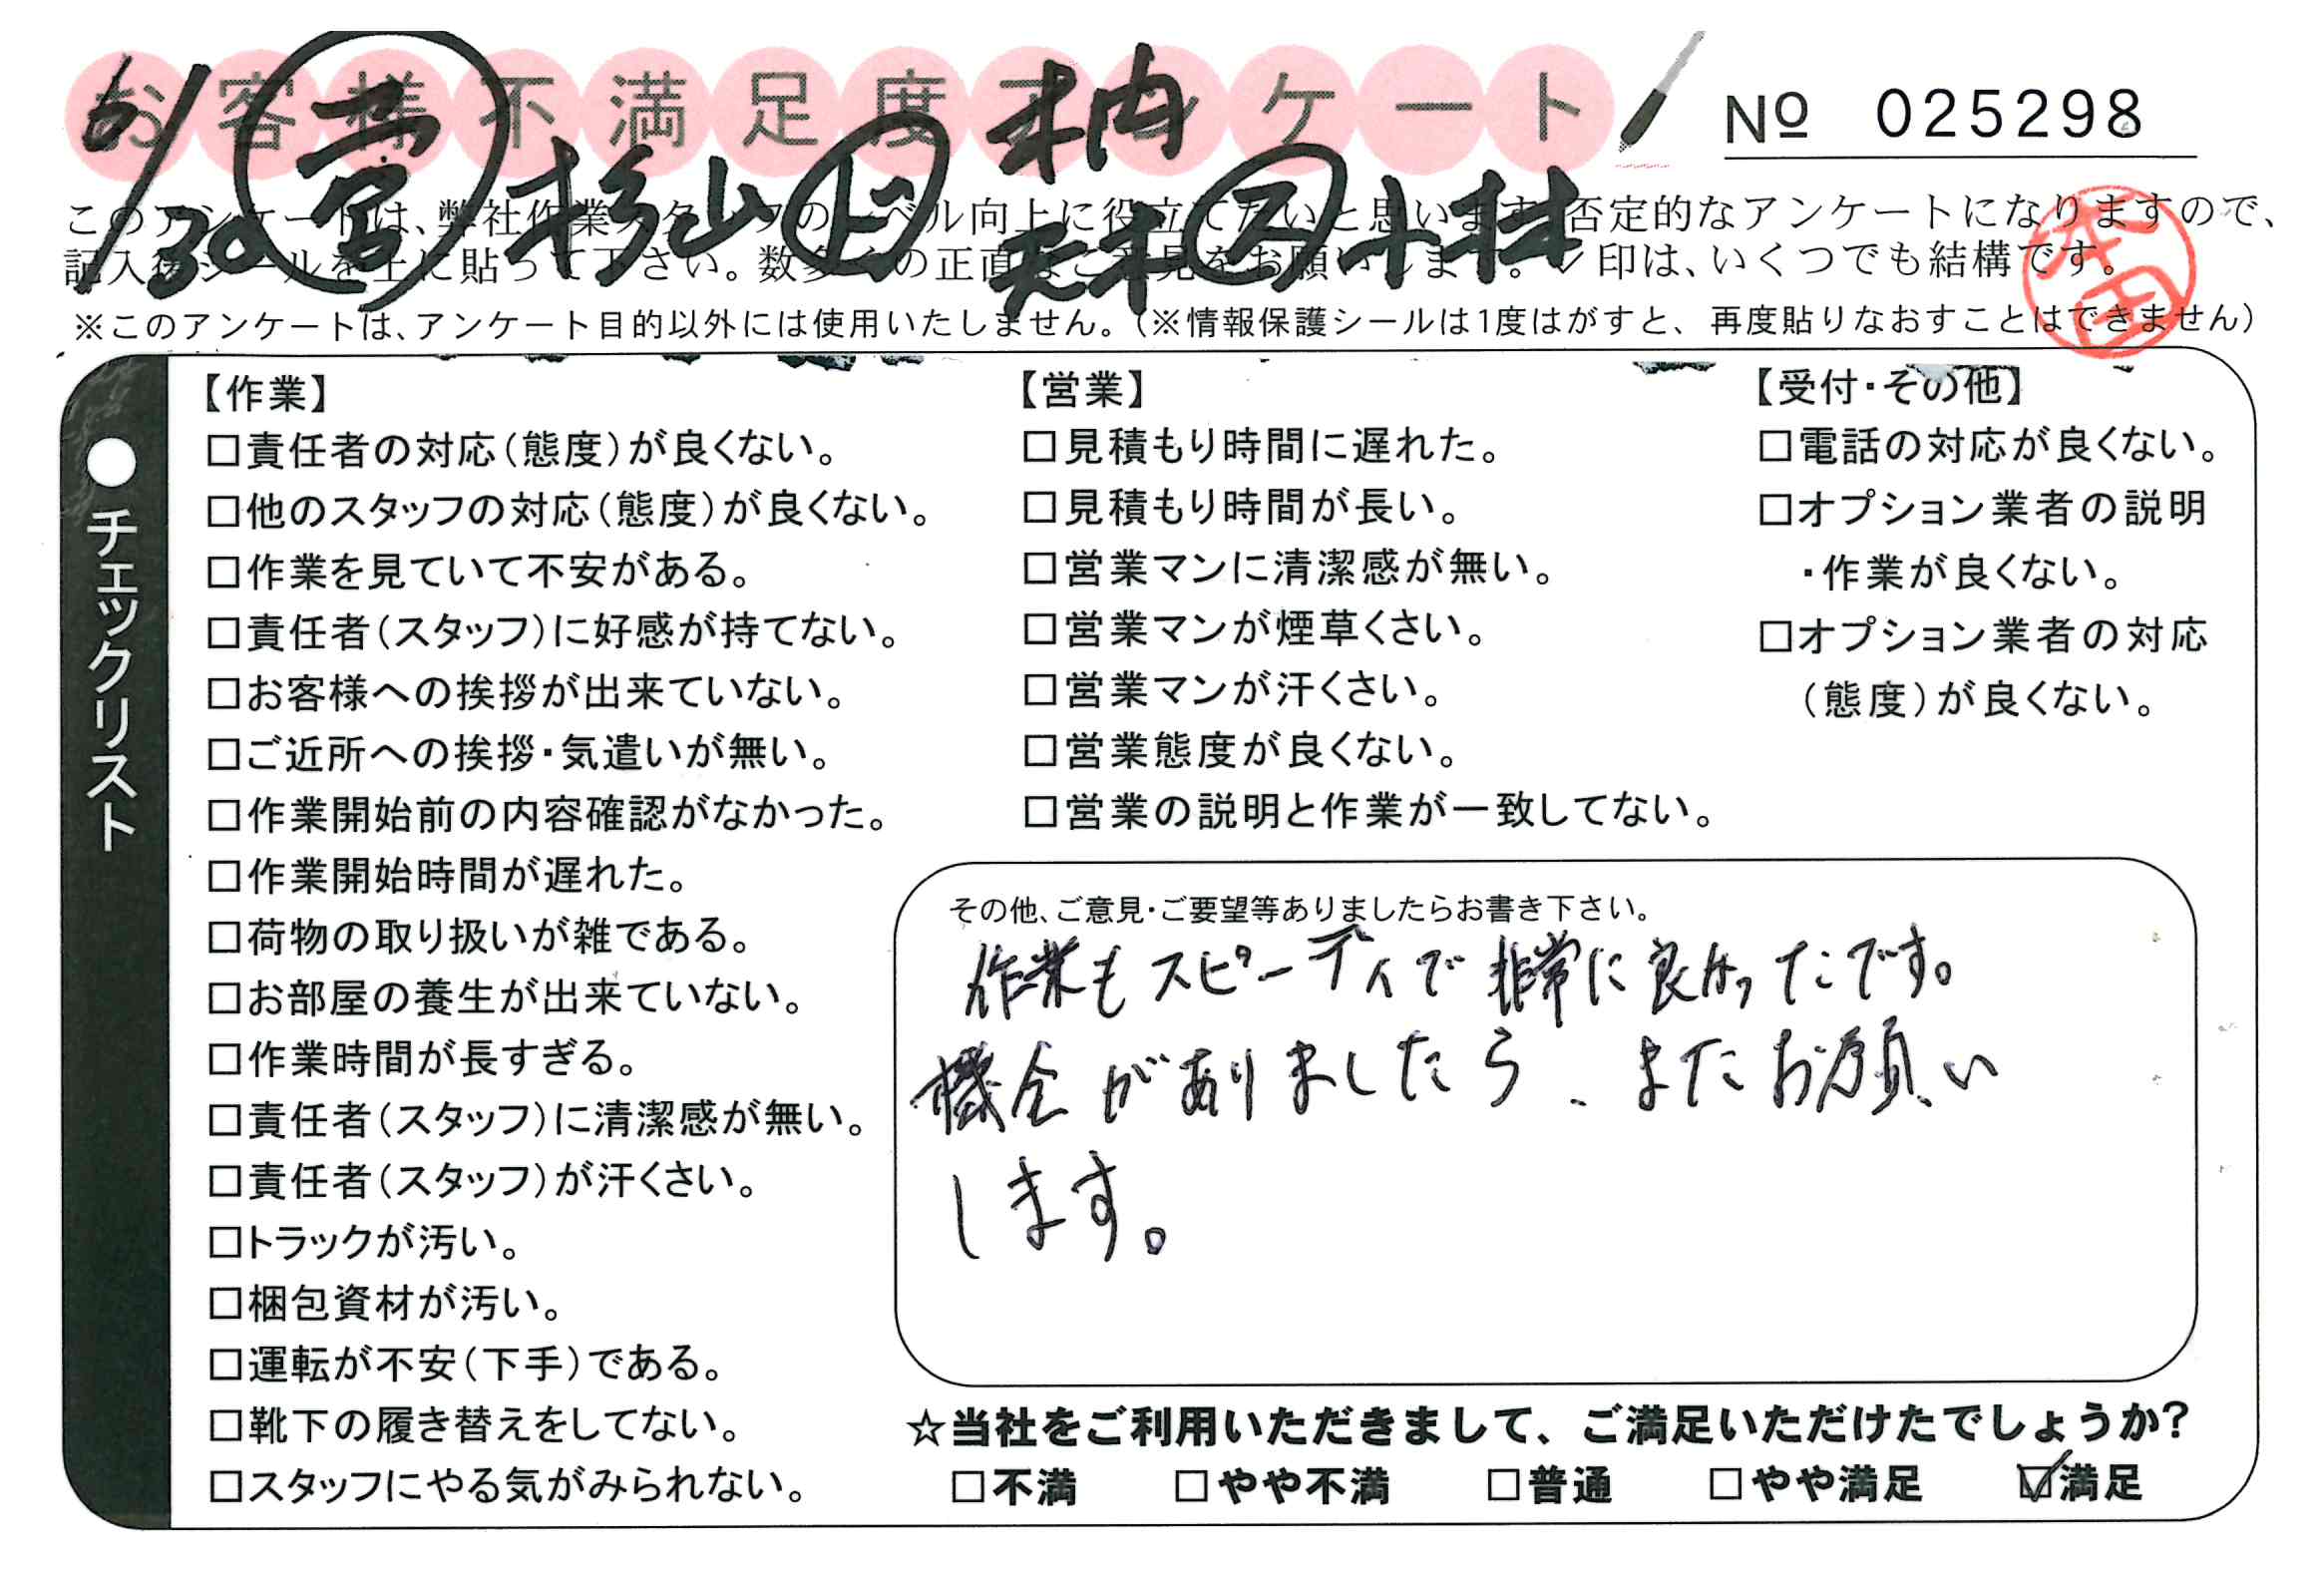 お客様不満足度アンケート
№ 025298
6/30 営 杉山 上 柄 天本 ス 小林
このアンケートは、弊社作業スタッフのレベル向上に役立てたいと思います。否定的なアンケートになりますので、
記入後シールを上に貼って下さい。数多くの正直なご意見をお願いします。✓印は、いくつでも結構です。
本田
※このアンケートは、アンケート目的以外には使用いたしません。（※情報保護シールは1度はがすと、再度貼りなおすことはできません）
●チェックリスト
【作業】
□責任者の対応（態度）が良くない。
□他のスタッフの対応（態度）が良くない。
□作業を見ていて不安がある。
□責任者（スタッフ）に好感が持てない。
□お客様への挨拶が出来ていない。
□ご近所への挨拶・気遣いが無い。
□作業開始前の内容確認がなかった。
□作業開始時間が遅れた。
□荷物の取り扱いが雑である。
□お部屋の養生が出来ていない。
□作業時間が長すぎる。
□責任者（スタッフ）に清潔感が無い。
□責任者（スタッフ）が汗くさい。
□トラックが汚い。
□梱包資材が汚い。
□運転が不安（下手）である。
□靴下の履き替えをしてない。
□スタッフにやる気がみられない。
【営業】
□見積もり時間に遅れた。
□見積もり時間が長い。
□営業マンに清潔感が無い。
□営業マンが煙草くさい。
□営業マンが汗くさい。
□営業態度が良くない。
□営業の説明と作業が一致してない。
【受付・その他】
□電話の対応が良くない。
□オプション業者の説明
・作業が良くない。
□オプション業者の対応
（態度）が良くない。
その他、ご意見・ご要望等ありましたらお書き下さい。
作業もスピーディで非常に良かったです。
機会がありましたら、またお願い
します。
☆当社をご利用いただきまして、ご満足いただけたでしょうか？
□不満 □やや不満 □普通 □やや満足 ☑満足